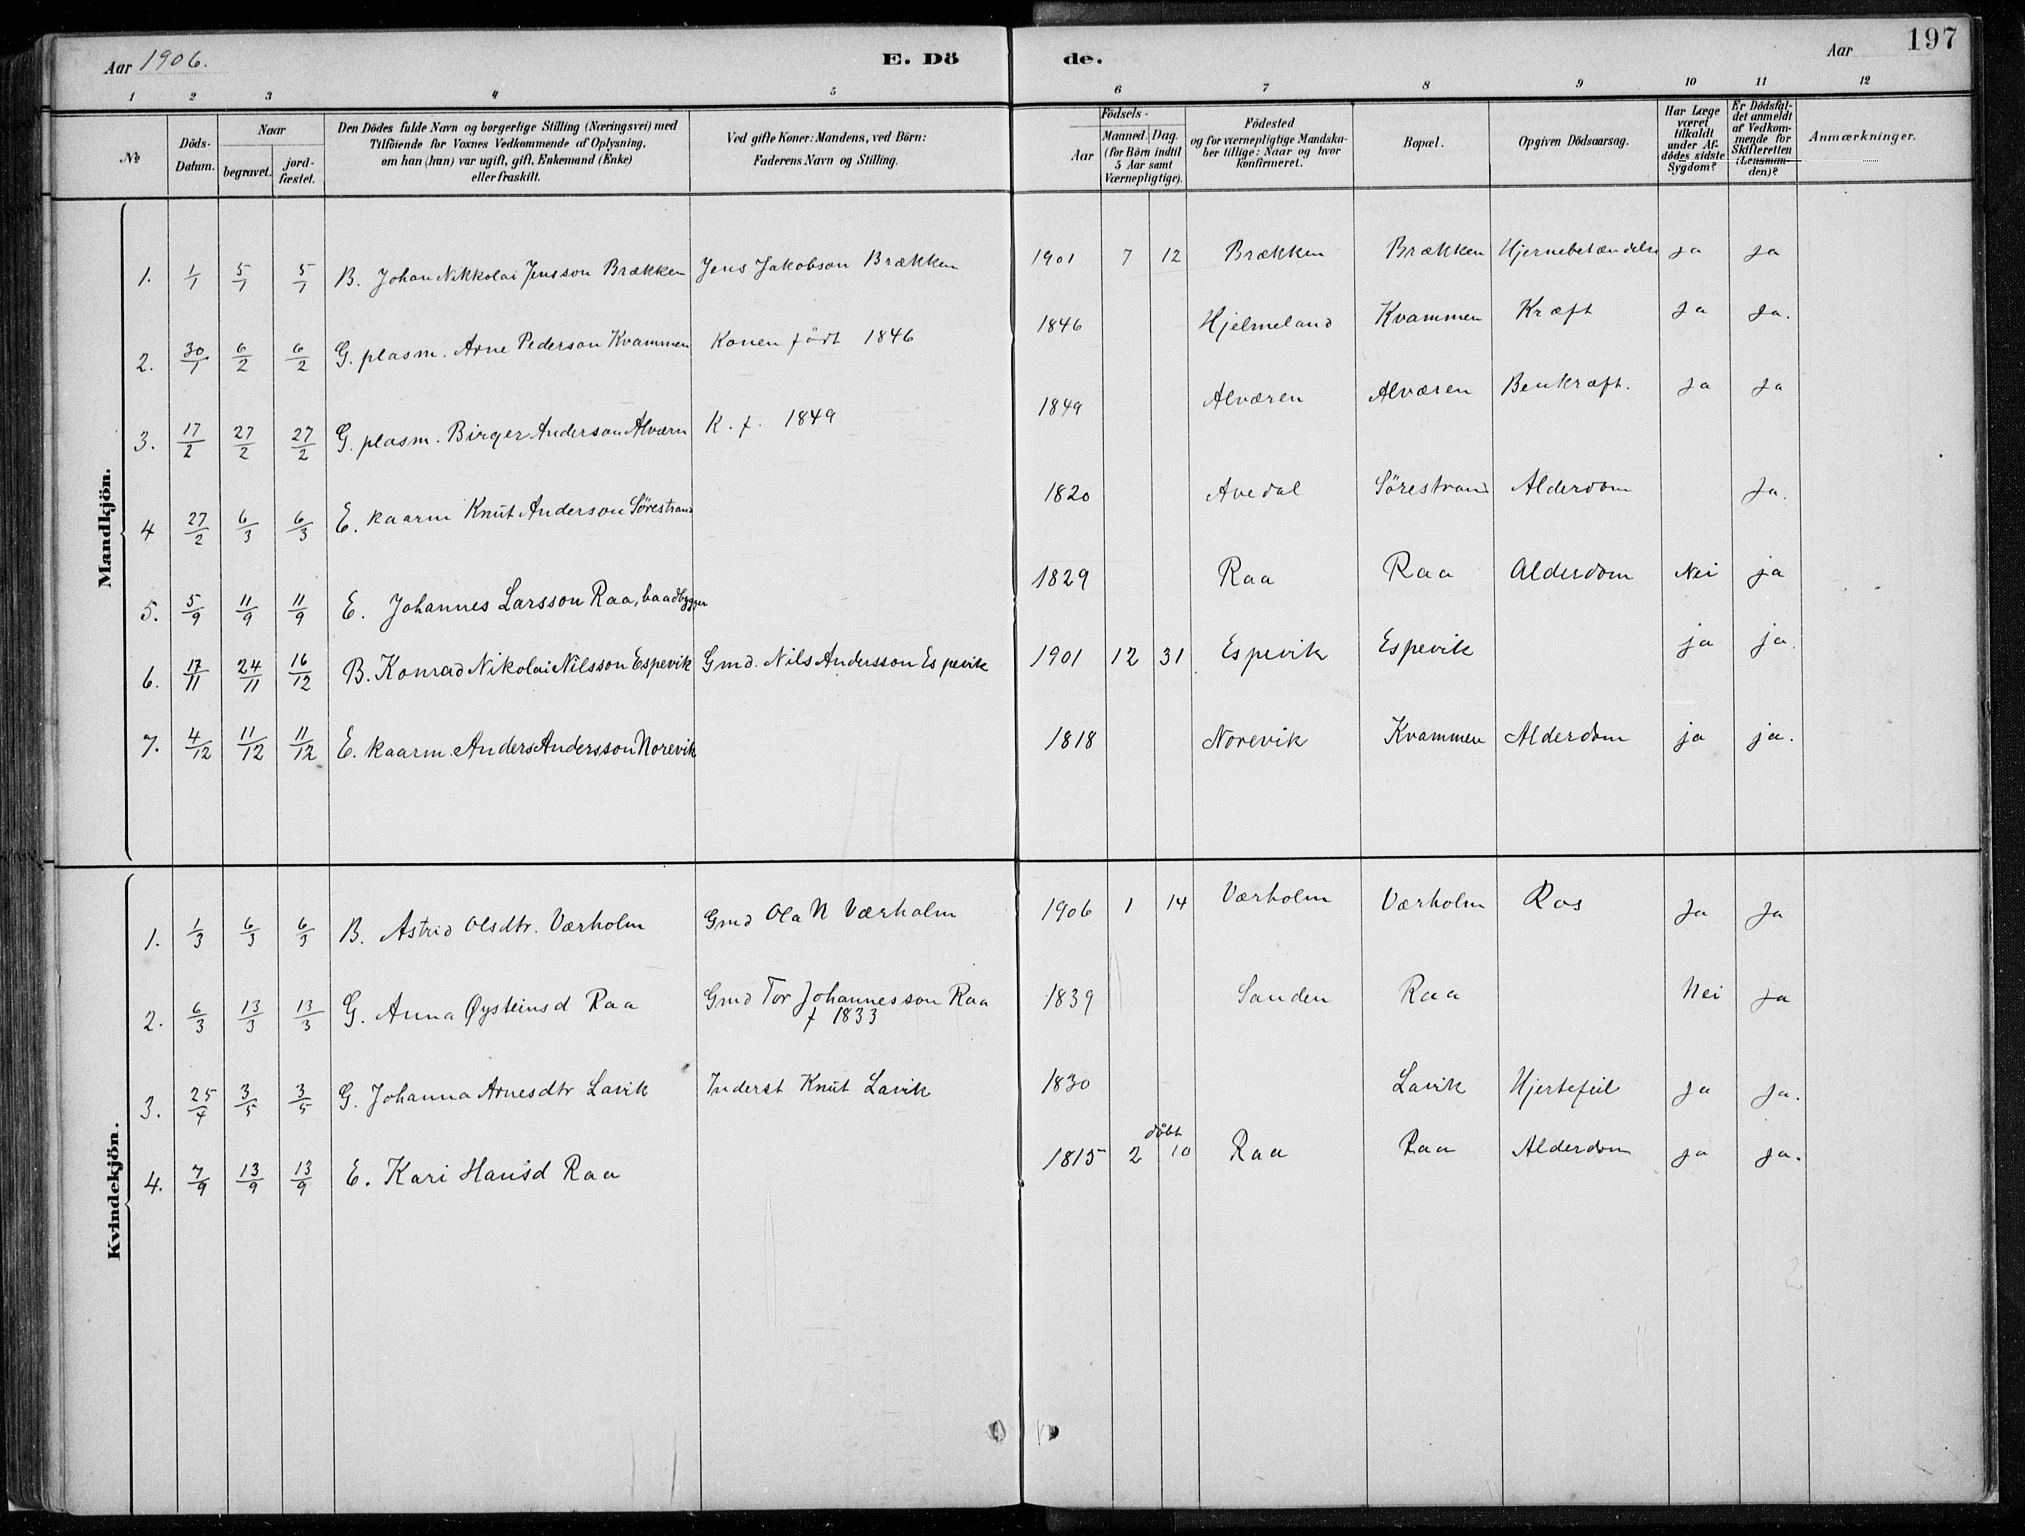 Aar 1906. E. Dö de. Aar 197
1 2 3 4 5 6 7 8 9 10 11 12
№ Döds-Datum. Naar begravet. jordfæstet. Den Dödes fulde Navn og borgerlige Stilling (Næringsvei) med Tilföiende for Voxnes Vedkommende af Oplysning, om han (hun) var ugift, gift, Enkemand (Enke) eller fraskilt. Ved gifte Koner: Mandens, ved Börn: Faderens Navn og Stilling. Födsels- Aar Maaned. Dag. (for Börn indtil 5 Aar samt Værnepligtige). Födested og for værnepligtige Mandskaber tillige: Naar og hvor konfirmeret. Bopæl. Opgiven Dödsaarsag. Har Læge været tilkaldt under Afdödes sidste Sygdom? Er Dödsfaldet anmeldt af Vedkommende for Skifteretten (Lensmanden)? Anmærkninger.
Mandkjön.
1. 1/1 5/1 5/1 B. Johan Nikkolai Jensson Brækken Jens Jakobson Brækken 1901 7 12 Brækken Brækken Hjernebetændelse ja ja
2. 30/1 6/2 6/2 G. plasm. Arne Pederson Kvammen Konen født 1846 1846 Hjelmeland Kvammen Kræft ja ja.
3. 17/2 27/2 27/2 G. plasm. Birger Anderson Alværn K. f. 1849 1849 Alværen Alværen Benkræft. ja ja
4 27/2 6/3 6/3 E. kaarm Knut Anderson Sørestrand 1820 Avedal Sörestrand Alderdom Ja.
5. 5/9 11/9 11/9 E. Johannes Larsson Raa, baadbygger 1829 Raa Raa Alderdom Nei ja
6. 17/11 24/11 16/12 B. Konrad Nikolai Nilsson Espevik Gmd. Nils Andersson Espevik 1901 12 31 Espevik Espevik ja ja.
7. 4/12 11/12 11/12 E. kaarm. Anders Andersson Norevik 1818 Norevik Kvammen Alderdom ja ja.
Kvindekjön.
1. 1/3 6/3 6/3 B. Astrid Olsdtr. Værholm Gmd Ola N Værholm 1906 1 14 Værholm Værholm Ros Ja Ja
2. 6/3 13/3 13/3 G. Anna Øysteinsd Raa Gmd Tor Johannesson Raa 1839 Sanden Raa Nei ja
f 1833
3. 25/4 3/5 3/5 G. Johanna Arnesdtr Lavik Inderst Knut Lavik 1830 Lavik Hjertefeil Ja Ja.
4. 7/9 13/9 13/9 E. Kari Hansd Raa 1815 2 døbt 10 Raa Raa Alderdom ja ja.